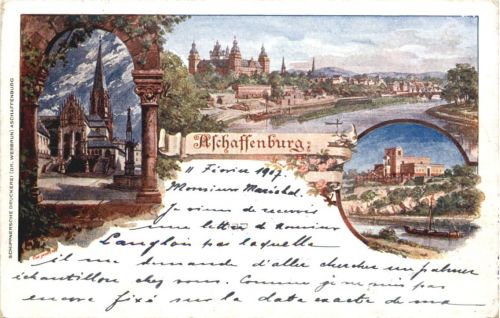 SCHIPNERSCHE DRUCKEREI (DR. WERBRUN) ASCHAFFENBURG
Aschaffenburg.
11 Février 1907
Monsieur Maréchal.
Je viens de recevoir
une lettre de monsieur
Langlois par laquelle
il me demande d'aller chercher un
échantillon chez vous. Comme je ne suis pas
encore fixé sur la date exacte de ma